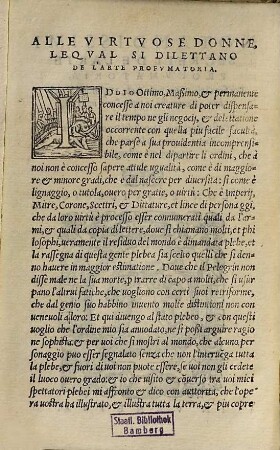 ALLE VIRTVOSE DONNE,
LEQVAL SI DILETTANO
DE L'ARTE PROFVMATORIA.
I DDIO Ottimo, Massimo, & permanente
concesse a noi creature di poter dispensa-
re il tempo ne gli negocij, & delettatione
occorrente con quella piu facile facultà,
che parse a sua prouidentia incomprensi-
bile, come è nel dipartire li ordini, che à
noi non è concesso sapere atiude ugualità, come è di maggio-
re & minore gradi, che è dal nascere per diuersità: si come è
lignaggio, o titolo, ouero per gratie, o uirtù: Che è Imperij,
Mitre, Corone, Scettri, & Dittature, et lince di personaggi,
che da loro uirtù è processo esser connumerati quali da l'ar-
mi, & quali da copia di lettere, doue si chiamano molti, et phi
losophi, ueramente il residuo del mondo è dimandata plebe, et
la rassegna di questa gente plebea sia scelto quelli che si den-
no hauere in maggior estimatione. Doue che il Pelegrin non
disse male ne la sua morte, o prarre di capo a molti, che si usur
pano l'altrui fatiche, che uogliono con certi suoi rensforme,
che dal genio suo habbino inuento molte distintioni non con
ueneuoli alloro: Et qui diuengo al stato plebeo, & con questi
uoglio che l'ordine mio sia annodato, ne si posti arguire ragio
ne sophista, & per uoi che si mostri al mondo, che alcuno per
sonaggio puo esser segnalato senza che non l'interuenga tutta
la plebe, & fuori di uoi non puote essere, se uoi non gli cedete
il luoco ouero grado: et io che uisito & couerso tra uoi mici
spettatori plebei mi affronto & dico con auttorità, che l'ope
ra uostra ha illustrato, & illustra tutta la terra, & piu copre
Staatl. Bibliothek
Bamberg